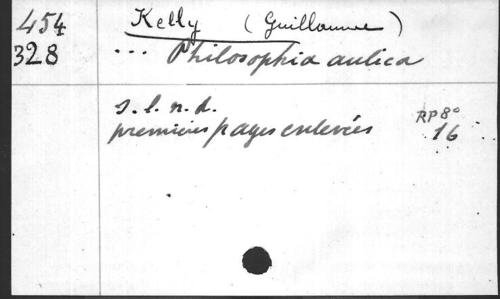 454
328
Kelly (Guillaume)
... Philosophia aulica
s. l. n. d.
premières pages enlevées
RP 8°
16